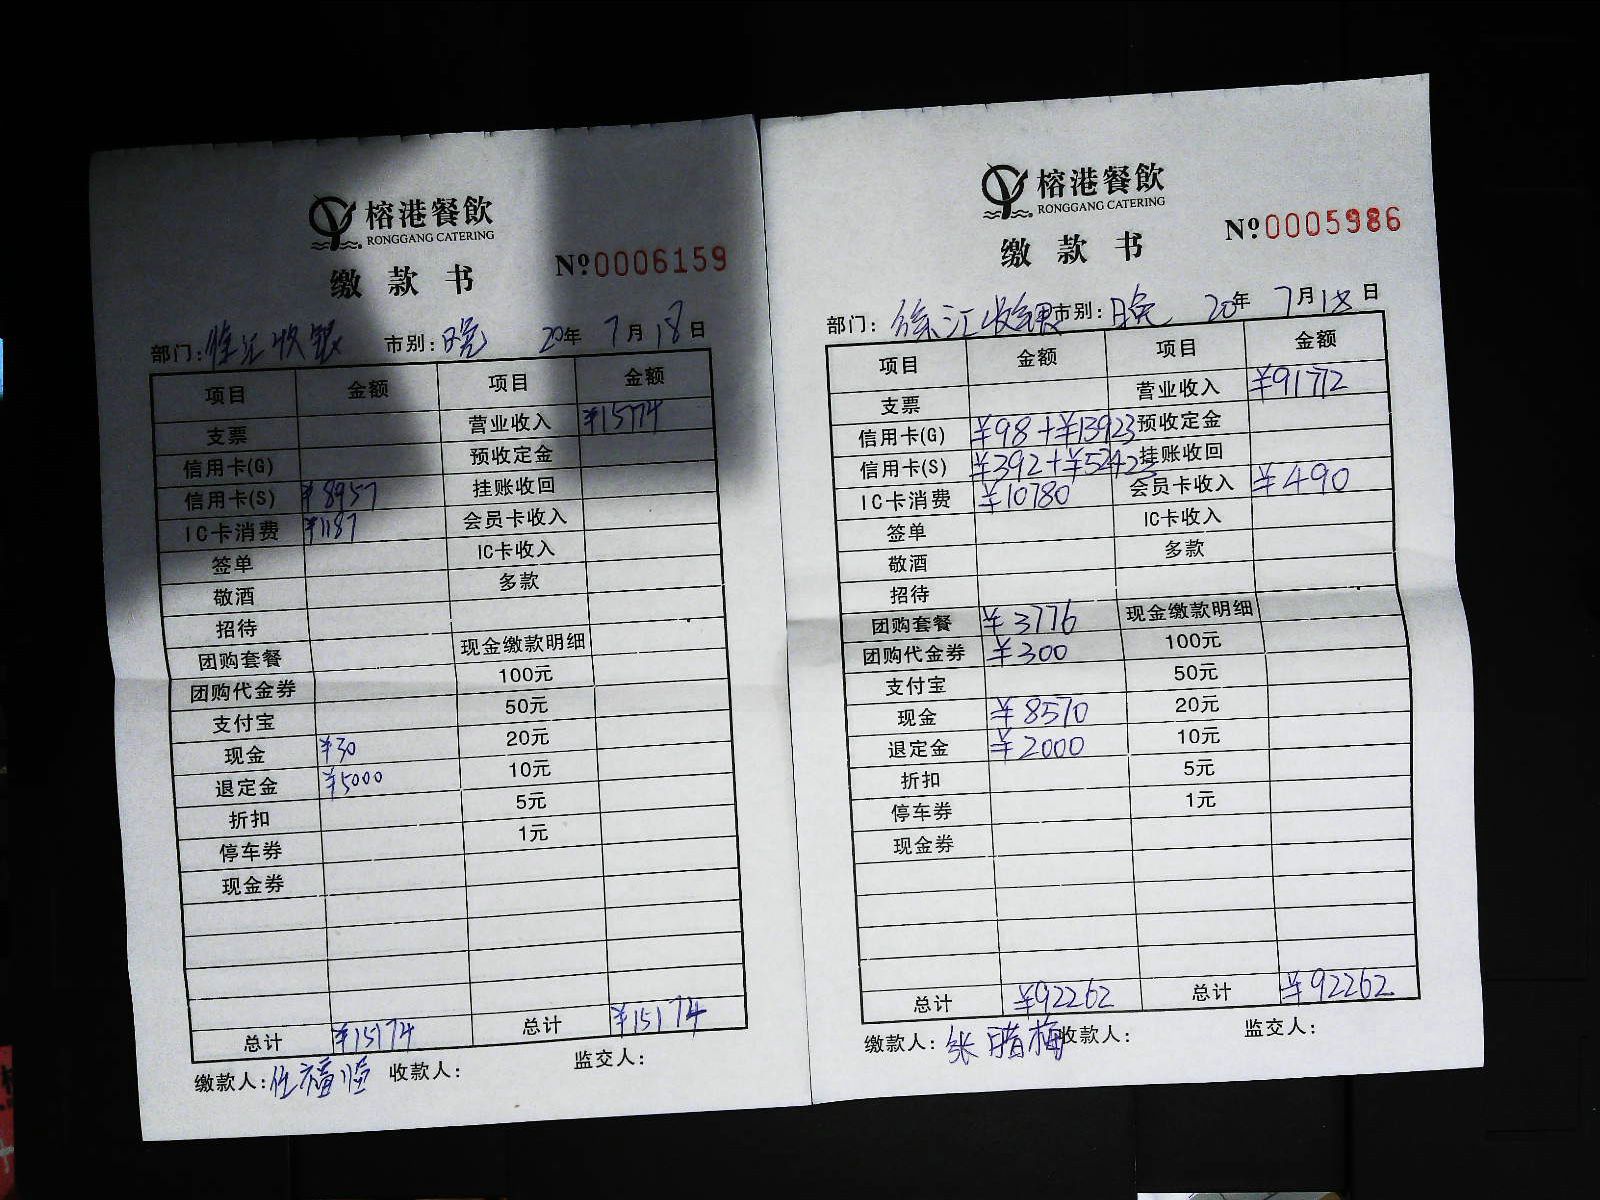 榕港餐飲
RONGGANG CATERING
缴款书
№0006159
部门:徐汇收银 市别:晚 20年 7月18日
项目 金额 项目 金额
支票 营业收入 ¥15174
信用卡(G) 预收定金
信用卡(S) ¥8957 挂账收回
IC卡消费 ¥1187 会员卡收入
签单 IC卡收入
敬酒 多款
招待
团购套餐 现金缴款明细
团购代金券 100元
支付宝 50元
现金 ¥30 20元
退定金 ¥5000 10元
折扣 5元
停车券 1元
现金券
总计 ¥15174 总计 ¥15174
缴款人: 收款人: 监交人:
榕港餐飲
RONGGANG CATERING
缴款书
№0005986
部门:徐汇收银 市别:晚 20年 7月18日
项目 金额 项目 金额
支票 营业收入 ¥91772
信用卡(G) ¥98+¥13923 预收定金
信用卡(S) ¥392+¥52423 挂账收回
IC卡消费 ¥10780 会员卡收入 ¥490
签单 IC卡收入
敬酒 多款
招待
团购套餐 ¥3776 现金缴款明细
团购代金券 ¥300 100元
支付宝 50元
现金 ¥8570 20元
退定金 ¥2000 10元
折扣 5元
停车券 1元
现金券
总计 ¥92262 总计 ¥92262
缴款人: 收款人: 监交人: